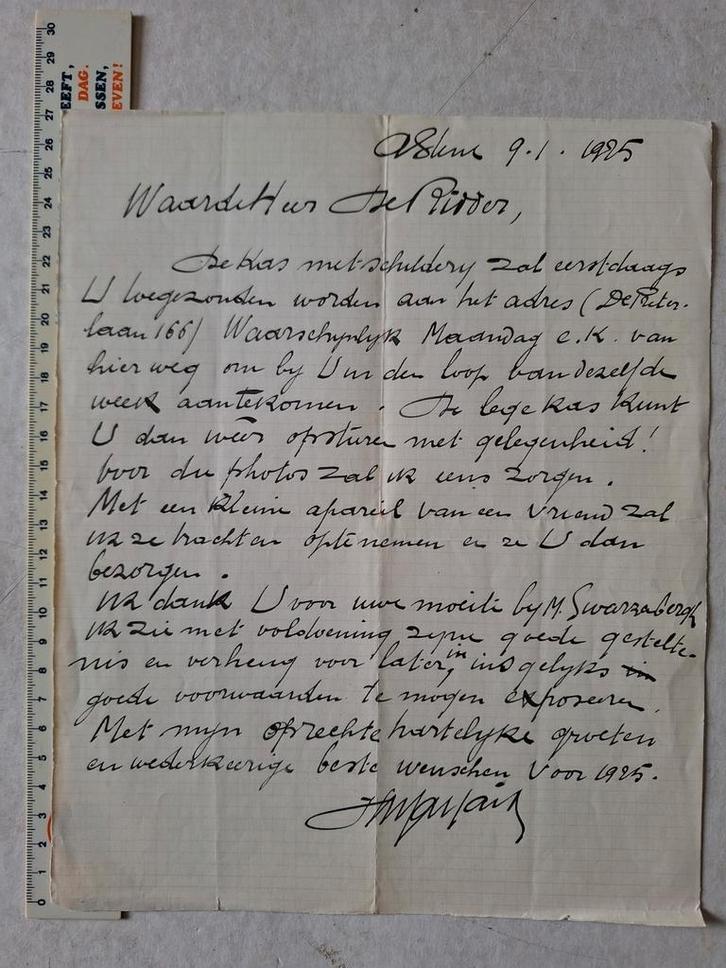 EEFT,
DAG.
SSEN,
EVEN!
30 29 28 27 26 25 24 23 22 21 20 19 18 17 16 15 14 13 12 11 10 9 8 7 6 5 4 3 2 1 0
9.1. 1925
Waarde Heer De Ridder,
De Kas met schildery zal eerstdaags
U toegezonden worden aan het adres (De Pieter-
laan 166) Waarschynlyk Maandag e.K. van
hier weg om by U in den loop van dezelfde
week aantekomen. De lege Kas Kunt
U dan weer opsturen met gelegenheid!
voor die photos zal ik eens zorgen.
Met een Kleine apareil van een vriend zal
ik ze trachten opte nemen en ze U dan
bezorgen.
ik dank U voor uwe moeite by M. Swarzenbergh
ik zie met voldoening zyne goede gestelte-
nis en verheug voor later, in insgelyks in
goede voorwaarden te mogen exposeren.
Met myn oprechte hartelyke groeten
en wederkeerige beste wenschen voor 1925.